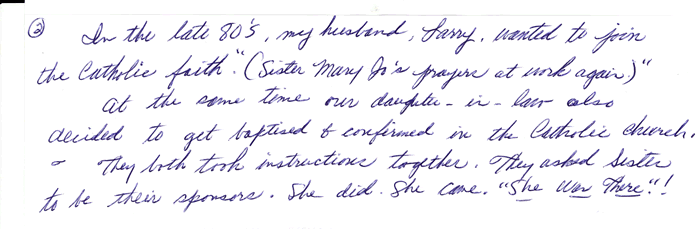 ② In the late 80's, my husband, Larry, wanted to join
the Catholic faith". (Sister Mary Jo's prayers at work again)"
At the same time our daughter-in-law also
decided to get baptised & confirmed in the Catholic church.
They both took instructions together. They asked Sister
to be their sponsors. She did. She came. "She Was There"!!